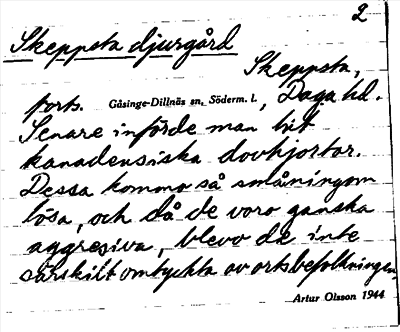 2
Skeppsta djurgård
Skeppsta,
forts. Gåsinge-Dillnäs sn, Söderm. l., Daga hd.
Senare införde man hit
kanadensiska dovhjortar.
Dessa kommo så småningom
lösa, och då de voro ganska
aggresiva, blevo de inte
särskilt omtyckta av ortsbefolkningen.
Artur Olsson 1944